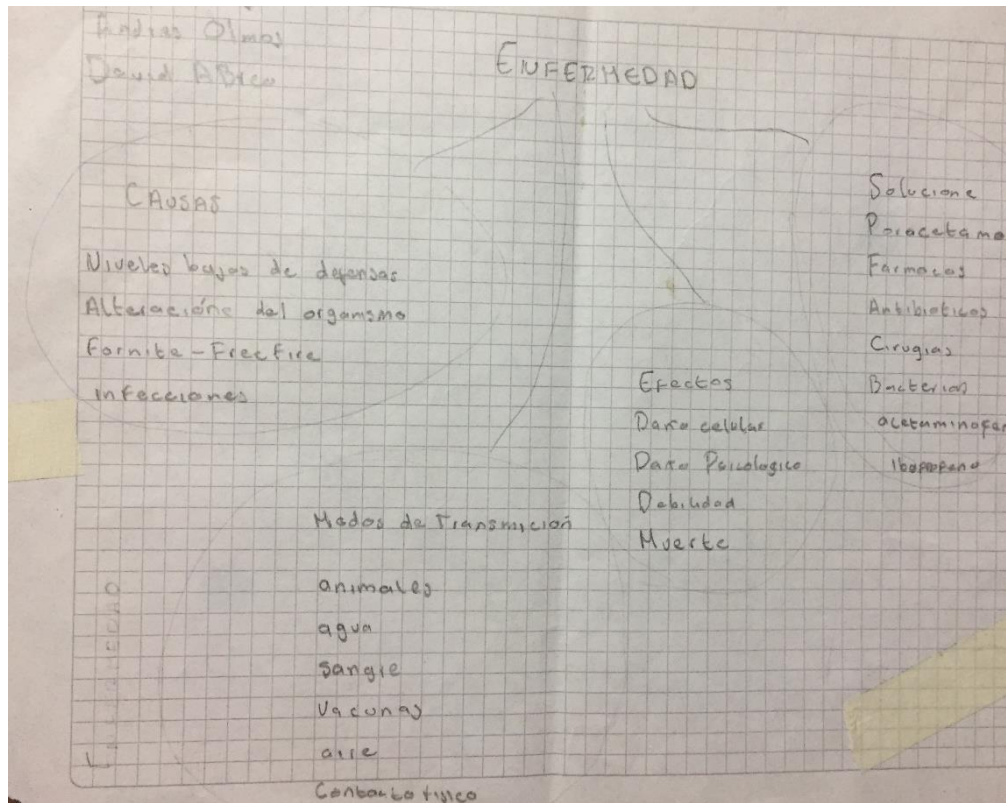 Andres Olmos
David
ENFERMEDAD
CAUSAS
Niveles bajos de defensas
Alteracióne del organismo
Fornite - Freefire
infecciones
Modos de Transmición
animales
agua
Sangre
Vacunas
aire
Contacto fisico
Efectos
Daño celular
Daño Psicologico
Debilidad
Muerte
Solucione
Paracetamo
Farmacos
Antibioticos
Cirugias
Bacterias
acetaminofen
Ibopropeno